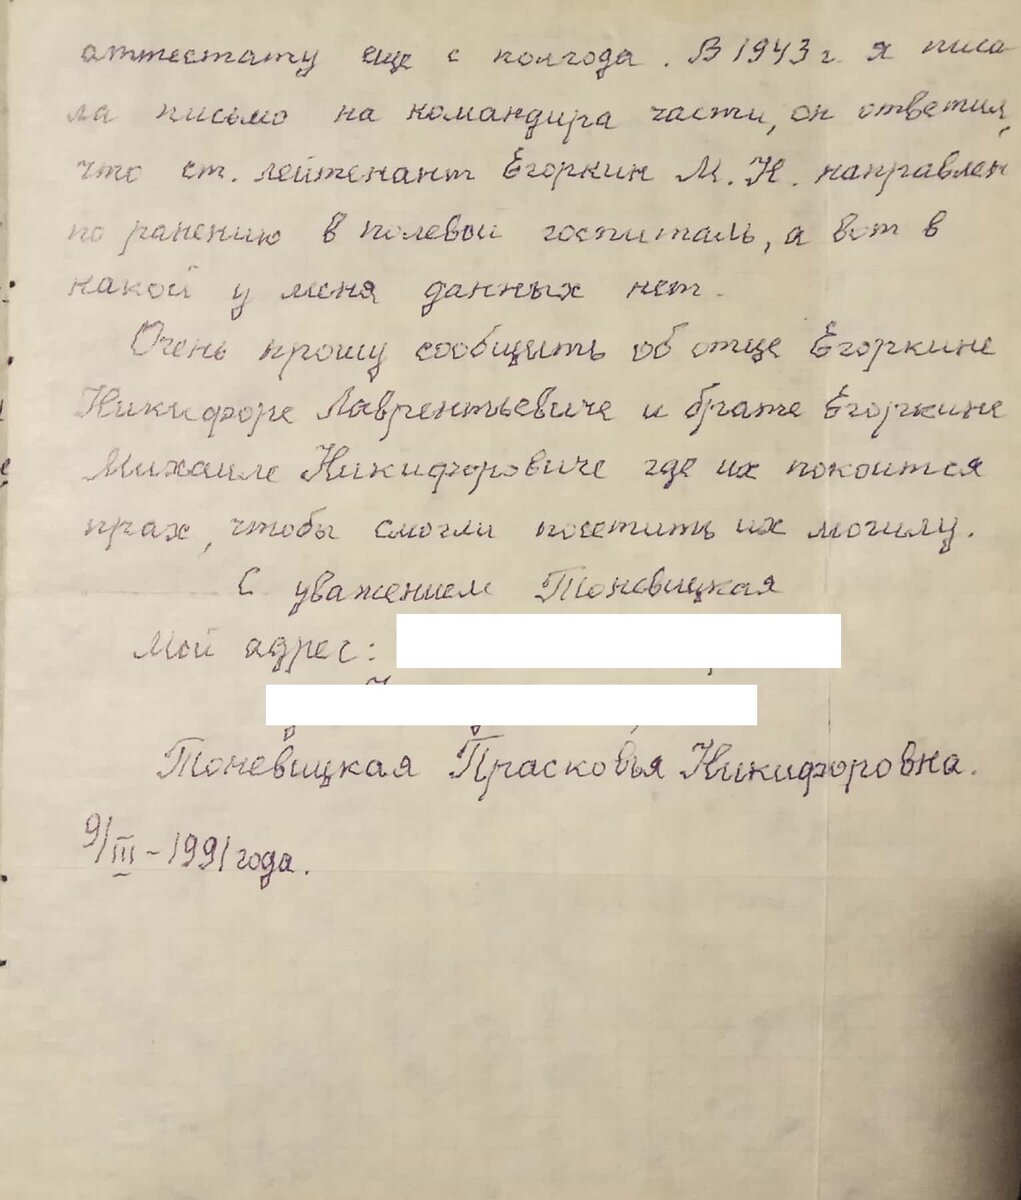 аттестату еще с полгода. В 1943 г. я писа
ла письмо на командира части, он ответил,
что ст. лейтенант Егоркин М. Н. направлен
по ранению в полевой госпиталь, а вот в
какой у меня данных нет.
Очень прошу сообщить об отце Егоркине
Никифоре Лаврентьевиче и брате Егоркине
Михаиле Никифоровиче где их покоится
прах, чтобы смогли посетить их могилу.
С уважением Тоневицкая
Мой адрес:
Тоневицкая Прасковья Никифоровна.
9/III – 1991 года.